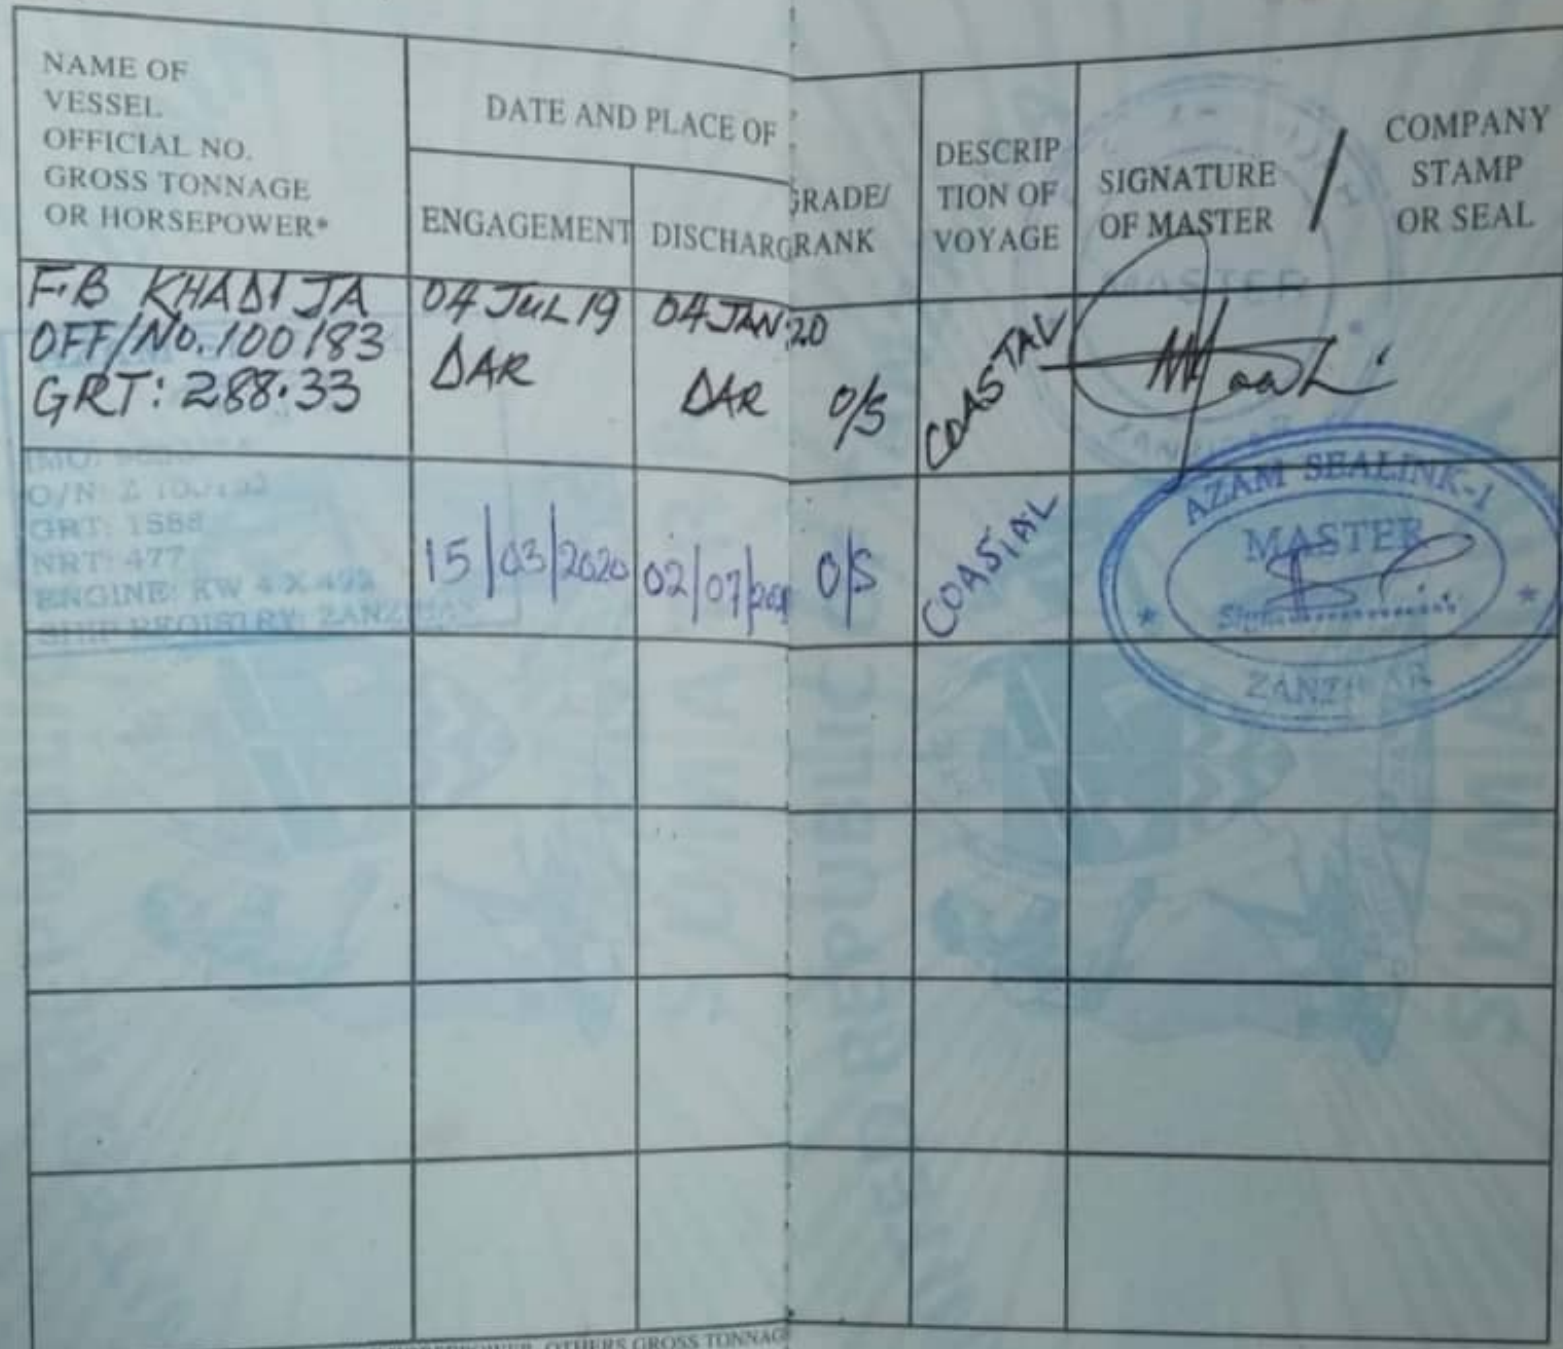 NAME OF
VESSEL
OFFICIAL NO.
GROSS TONNAGE
OR HORSEPOWER*
DATE AND PLACE OF
ENGAGEMENT
DISCHARG
GRADE/
RANK
DESCRIP
TION OF
VOYAGE
SIGNATURE
OF MASTER
/
COMPANY
STAMP
OR SEAL
F.B KHADIJA
OFF/No. 100183
GRT: 288.33
04 JUL 19
DAR
04 JAN 20
DAR
O/S
COASTAL
MASTER
IMO:
O/N: Z
GRT: 1588
NRT: 477
ENGINE: KW 4 X 499
SHIP REGISTRY: ZANZIBAR
15/03/2020
02/07/
O/S
COASIAL
AZAM SEALINK-1
MASTER
Sign
ZANZIBAR
REPUBLIC
OTHERS GROSS TONNAG